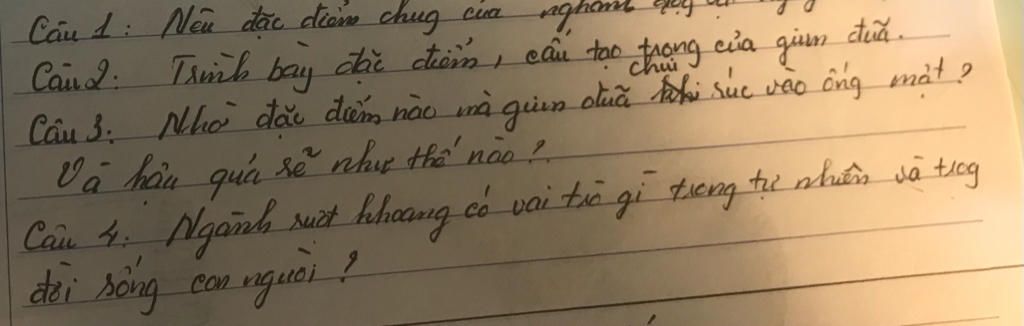 Câu 1: Nêu đặc điểm chug của
Câu 2: Trình bày đặc điểm, cấu tạo trong của giun đũa.
Câu 3: Nhờ đặc điểm nào mà giun đũa chui rúc vào ống mật?
Và hậu quả sẽ như thế nào?
Câu 4: Ngành ruột khoang có vai trò gì trong tự nhiên và trog
đời sống con người?